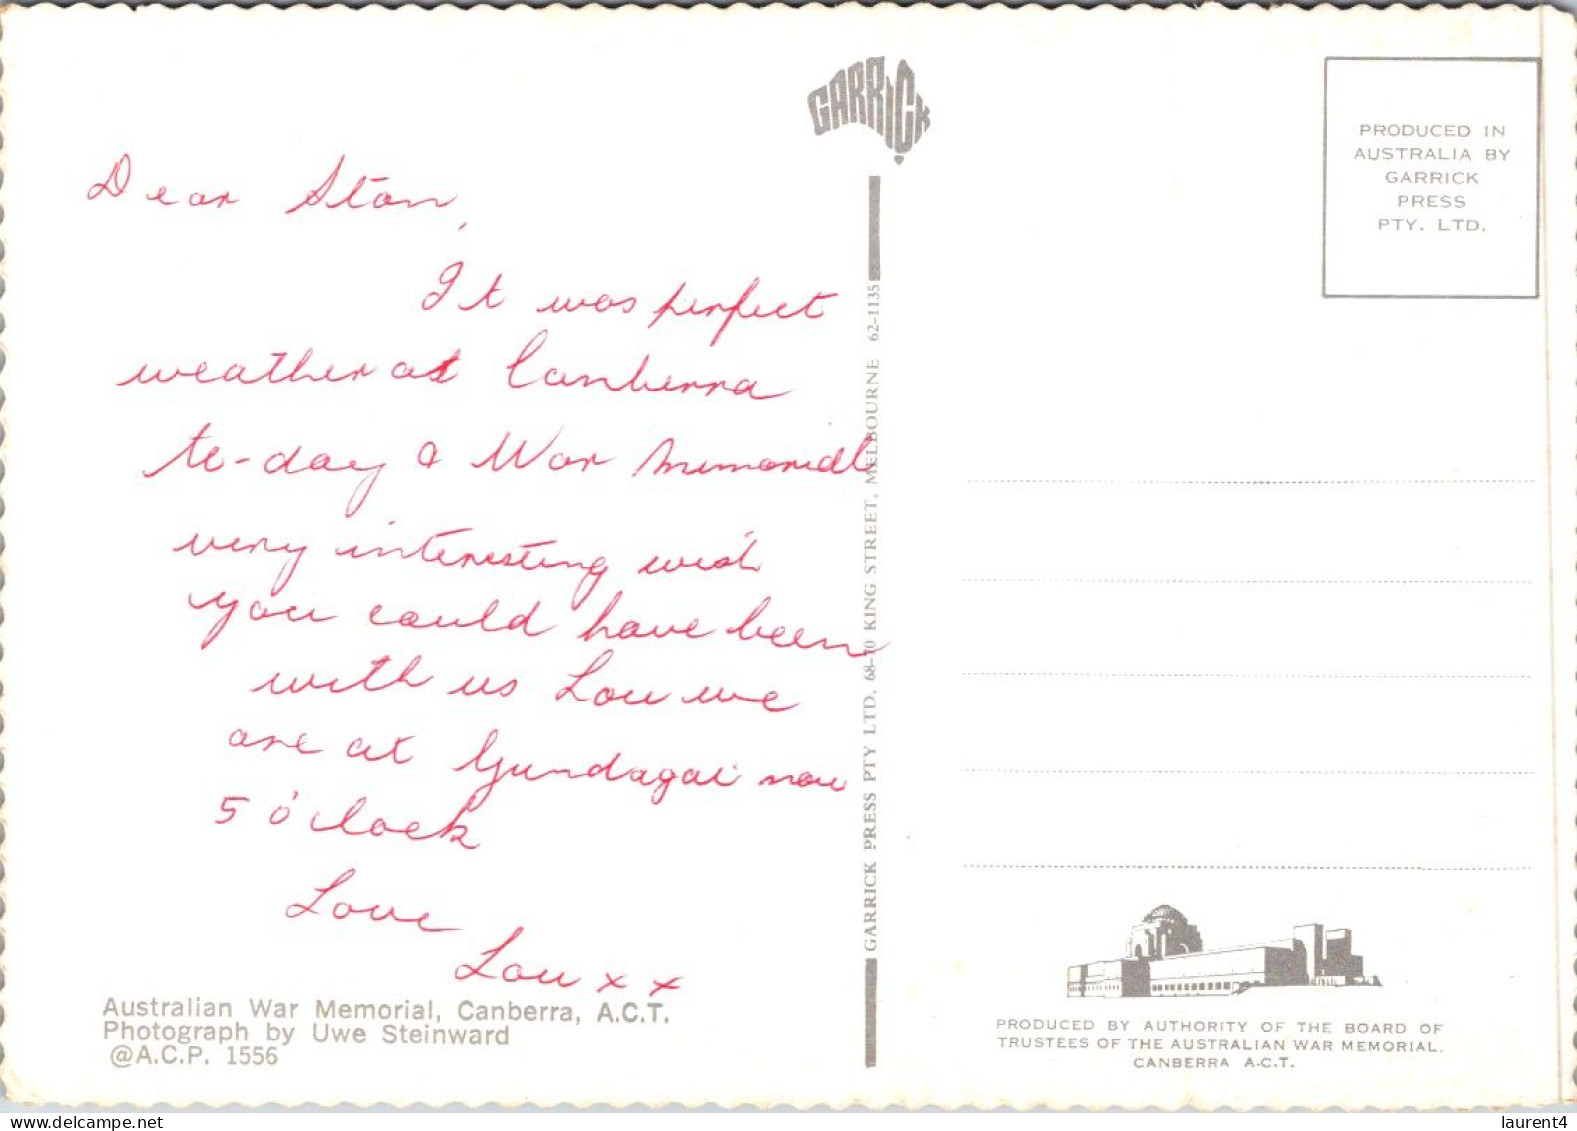 Dear Stan,
It was perfect
weather at Canberra
to-day & War Memorial
very interesting wish
you could have been
with us Lou we
are at Gundagai now
5 o'clock
Love
Lou x x
Australian War Memorial, Canberra, A.C.T.
Photograph by Uwe Steinward
@A.C.P. 1556
GARRICK
GARRICK PRESS PTY LTD. 68-70 KING STREET, MELBOURNE 62-1135
PRODUCED IN
AUSTRALIA BY
GARRICK
PRESS
PTY. LTD.
PRODUCED BY AUTHORITY OF THE BOARD OF
TRUSTEES OF THE AUSTRALIAN WAR MEMORIAL,
CANBERRA A.C.T.
delcampe.net
laurent4